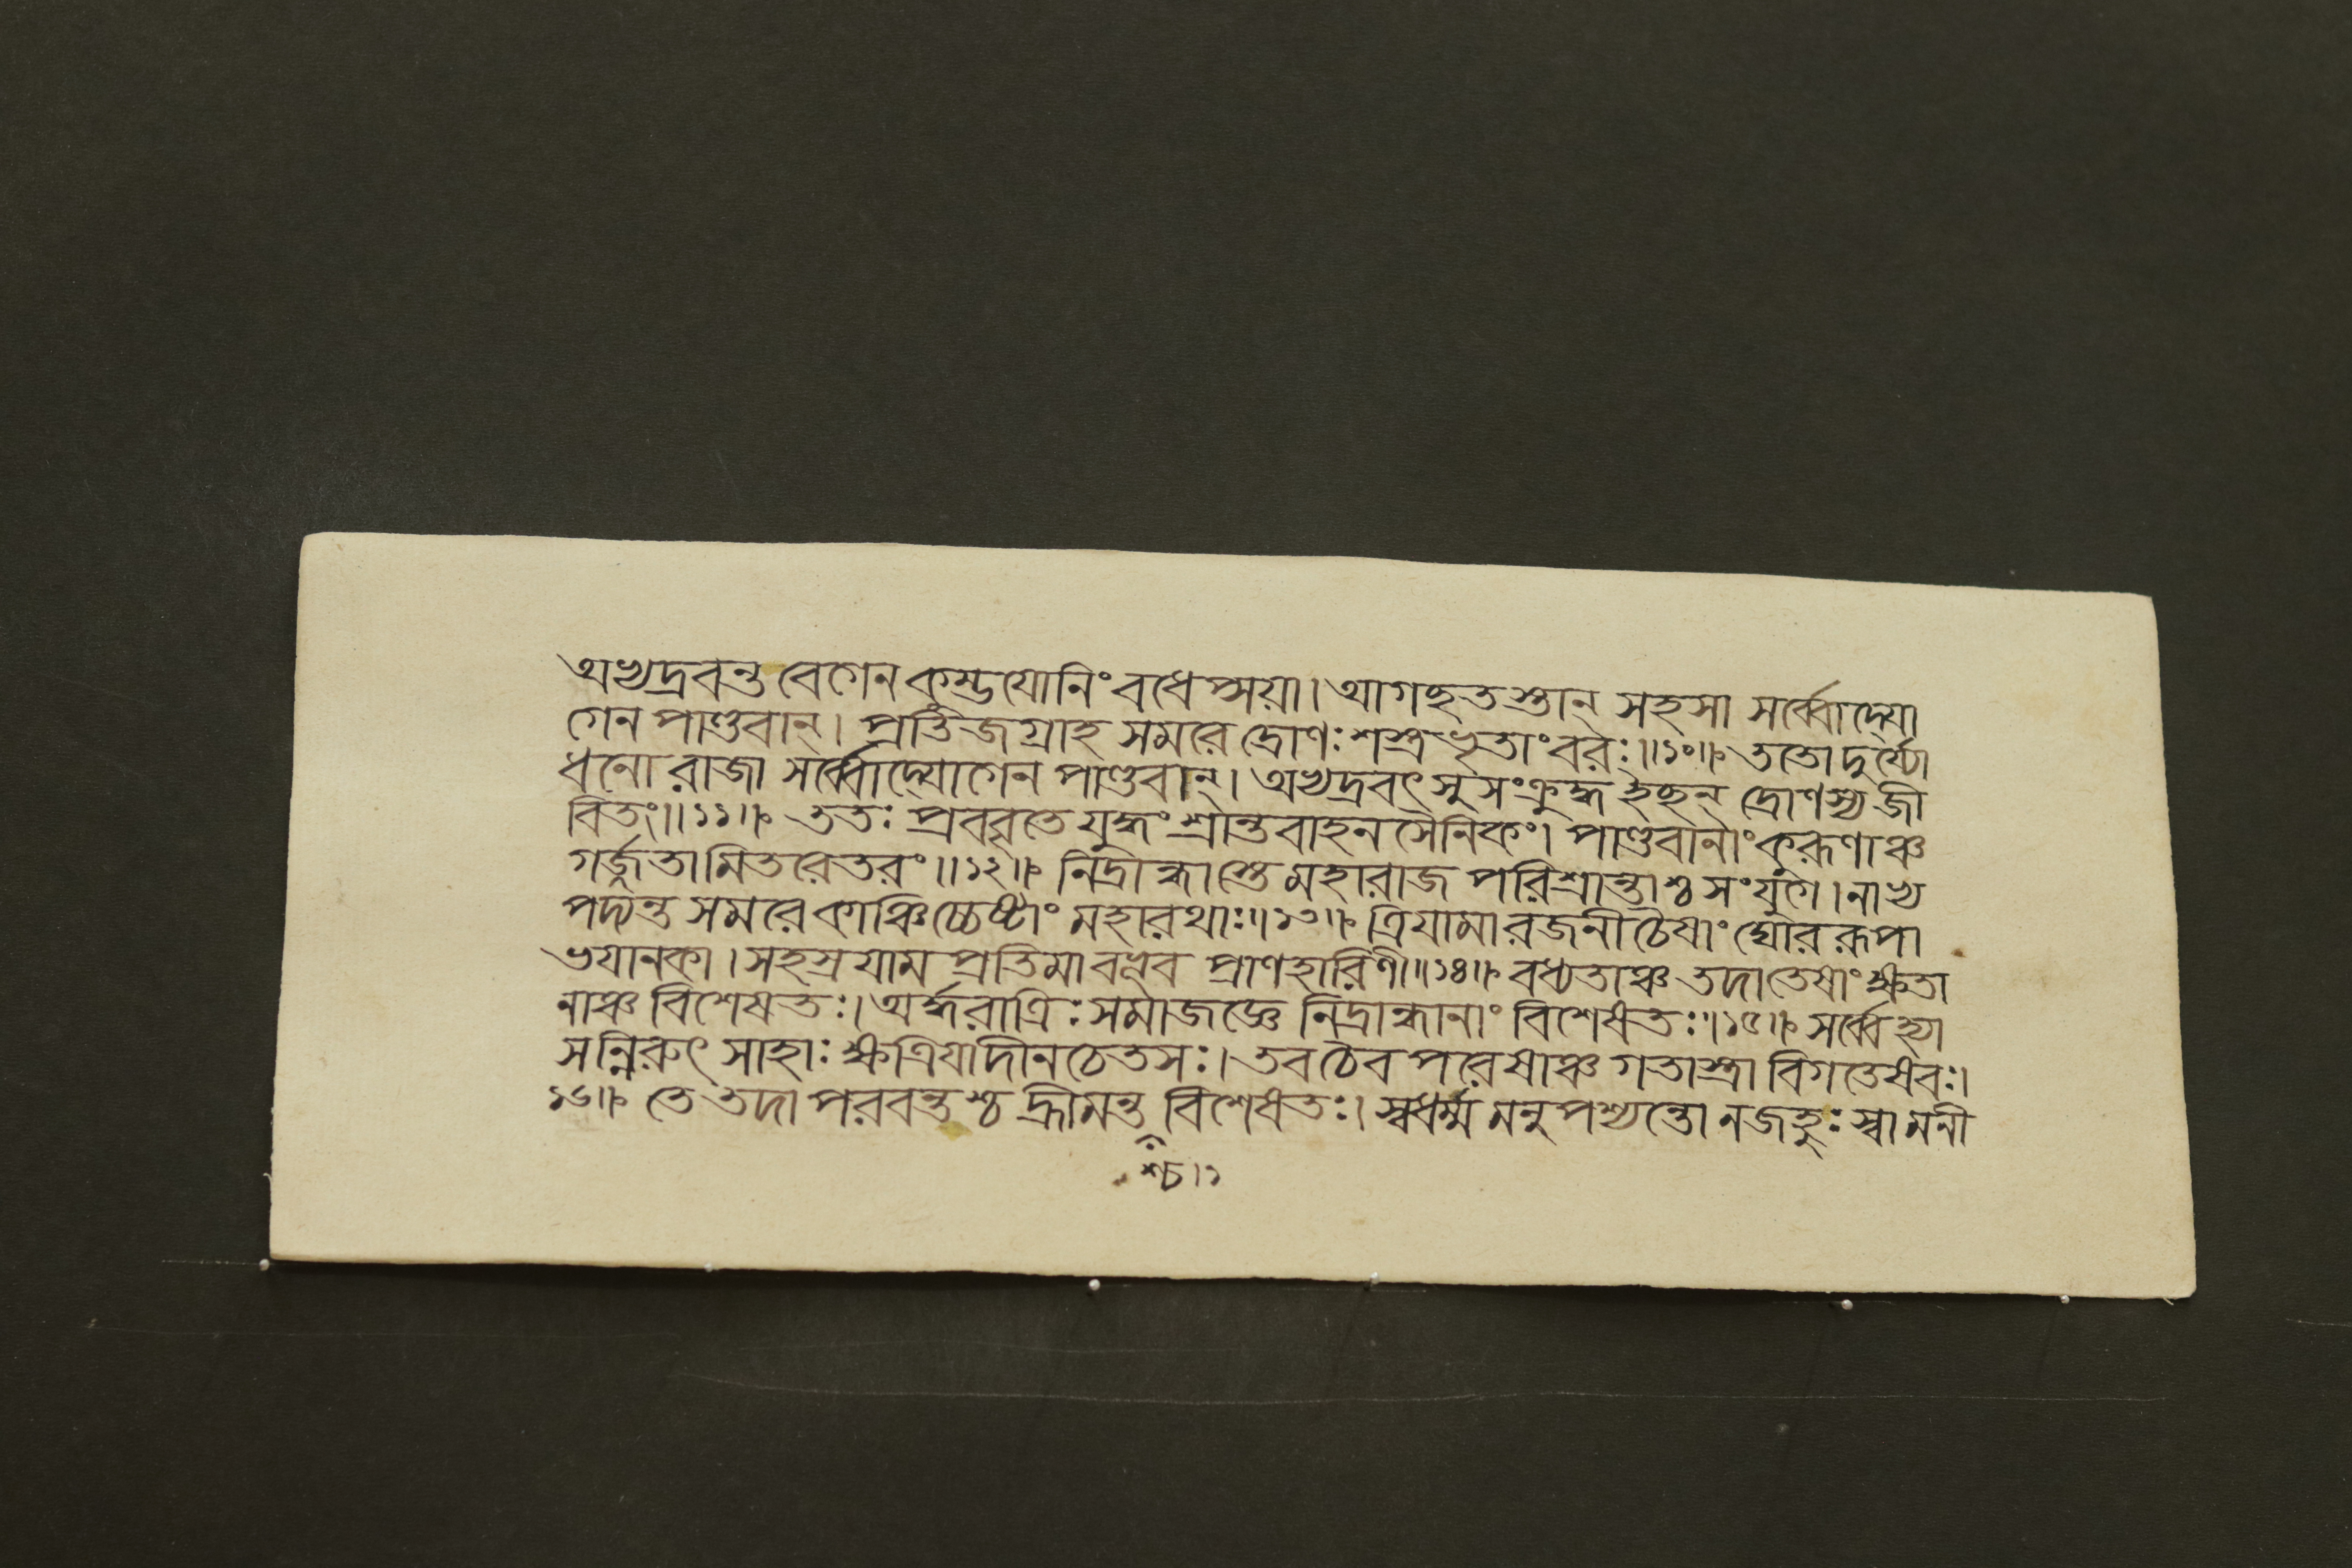 অভ্যদ্রবন্ত বেগেন কুম্ভযোনিং বধেপ্সয়া। আগচ্ছতস্তান্ সহসা সর্ব্বোদ্যো
গেন পাণ্ডবান্। প্রতিজগ্রাহ সমরে দ্রোণঃ শস্ত্রভৃতাং বরঃ॥১০॥ ততো দুর্য্যো
ধনো রাজা সর্ব্বোদ্যোগেন পাণ্ডবান্। অভ্যদ্রবৎ সুসংক্রুদ্ধ ইচ্ছন্ দ্রোণস্য জী
বিতং॥১১॥ ততঃ প্রববৃতে যুদ্ধং শ্রান্তবাহনসৈনিকং। পাণ্ডবানাং কুরূণাঞ্চ
গর্জ্জতামিতরেতরং॥১২॥ নিদ্রান্ধাস্তে মহারাজ পরিশ্রান্তাশ্চ সংযুগে। নাভ্য
পদ্যন্ত সমরে কাঞ্চিচ্চেষ্টাং মহারথাঃ॥১৩॥ ত্রিযামা রজনী চৈষাং ঘোররূপা
ভযানকা। সহস্রযাম প্রতিমা বভূব প্রাণহারিণী॥১৪॥ বধ্যতাঞ্চ তদা তেষাং ক্ষতা
নাঞ্চ বিশেষতঃ। অর্দ্ধরাত্রিঃ সমাজজ্ঞে নিদ্রান্ধানাং বিশেষতঃ॥১৫॥ সর্ব্বে হ্যা
সন্নিরুৎসাহাঃ ক্ষত্রিযা দীনচেতসঃ। তব চৈব পরেষাঞ্চ গতাস্ত্রা বিগতেষবঃ।
১৬॥ তে তদা পরবন্তশ্চ হ্রীমন্ত বিশেষতঃ। স্বধর্ম্ম মনুপশ্যন্তো ন জহুঃ স্বামনী
শ্চ।১